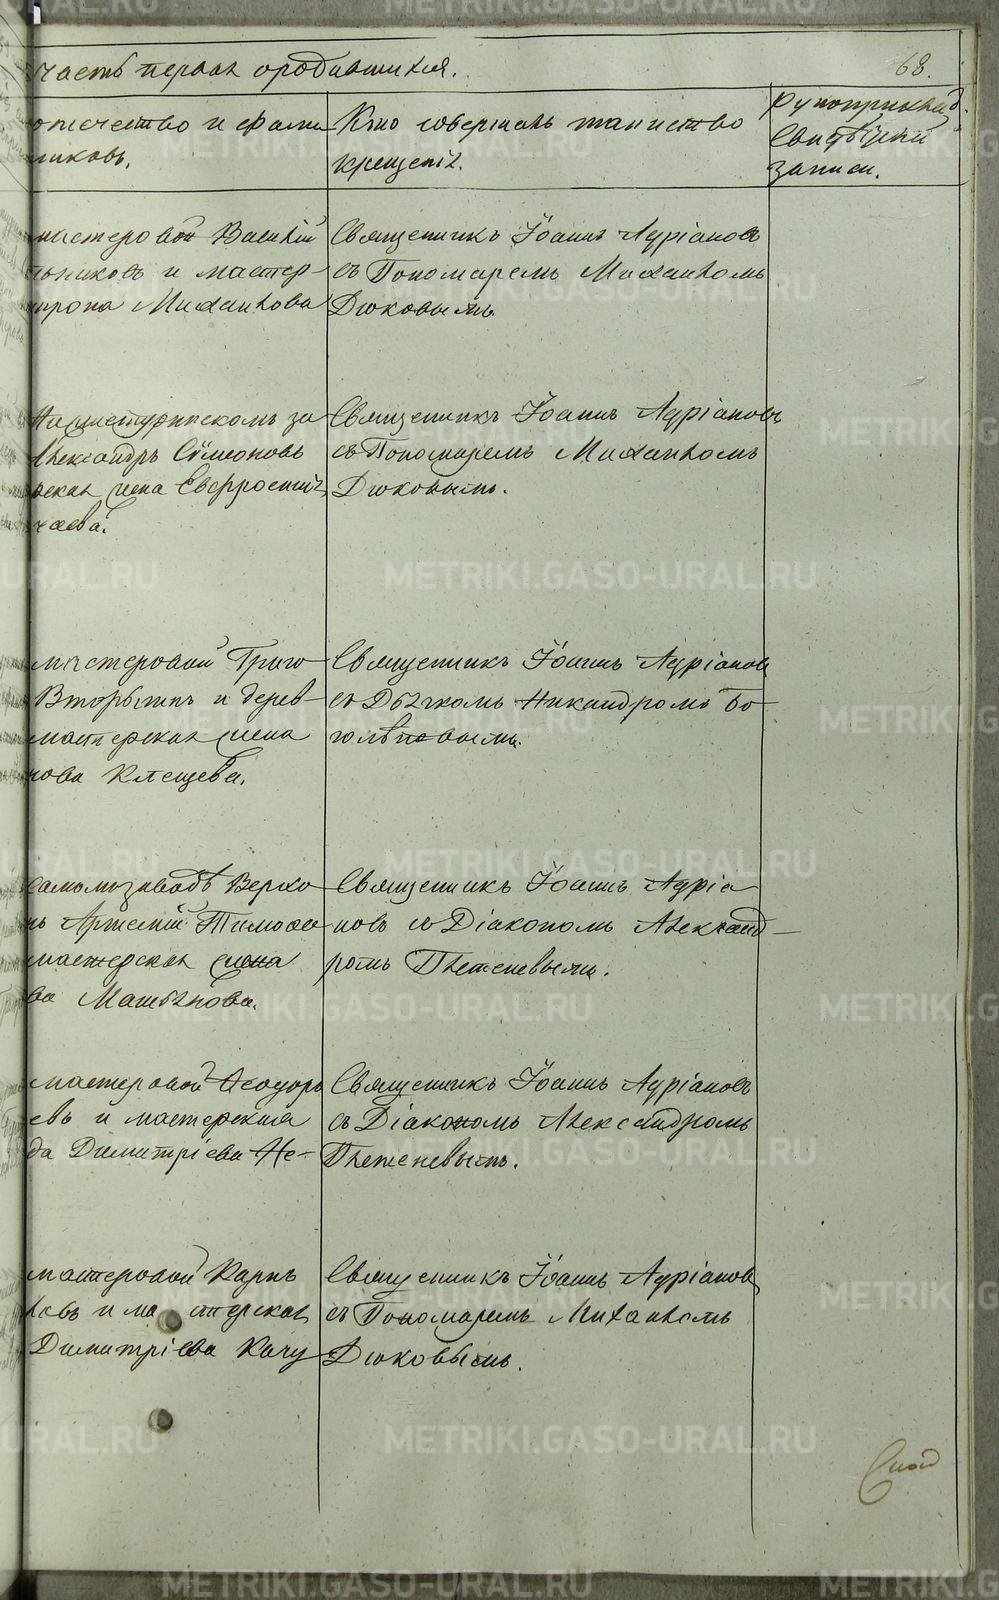 часть первая о родившихся.
68.
отечество и фами
никовъ.
Кто совершалъ таинство
крещенiя.
Рукоприклад.
свидѣтелей
записи.
мастеровой Василiй
ьниковъ и мастер-
Михаилова
Священникъ Iоаннъ Адрiановъ
съ Пономаремъ Михаиломъ
Дюковымъ.
Нижнетуринскомъ за
Александръ Сѵмеоновъ
рская жена Евфросинiя
чаева.
Священникъ Iоаннъ Адрiановъ
съ Пономаремъ Михаиломъ
Дюковымъ.
мастеровой Григо
Вторыгинъ и дерев-
мастерская жена
нова Клещева.
Священникъ Iоаннъ Адрiановъ
съ Дьячкомъ Никандромъ Бо
голѣповымъ.
самомъ заводѣ Верхо
нъ Артемiй Тимофе
мастерская жена
ва Мамынова.
Священникъ Iоаннъ Адрiа
новъ съ Дiакономъ Александ-
ромъ Плетеневымъ.
мастеровой Ѳеодоръ
евъ и мастерская
да Димитрiева Не-
Священникъ Iоаннъ Адрiановъ
съ Дiакономъ Александромъ
Плетеневымъ.
мастеровой Карпъ
ловъ и мастерская
Димитрiева Качу
Священникъ Iоаннъ Адрiановъ
съ Пономаремъ Михаиломъ
Дюковымъ.
METRIKI.GASO-URAL.RU